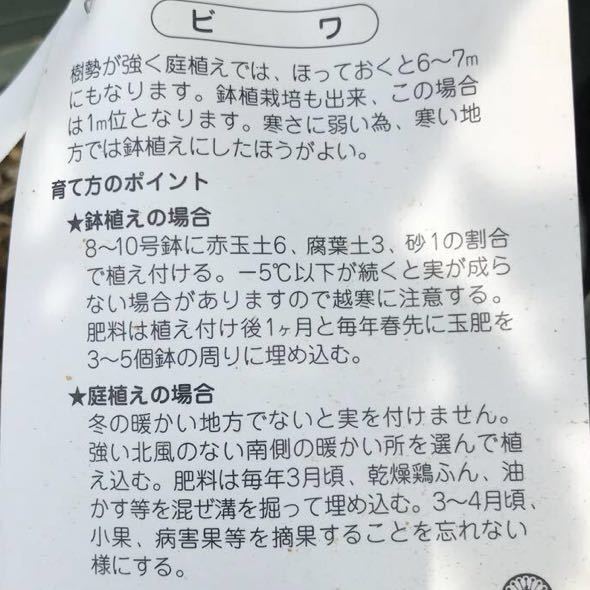 ビワ
樹勢が強く庭植えでは、ほっておくと6〜7m
にもなります。鉢植栽培も出来、この場合
は1m位となります。寒さに弱い為、寒い地
方では鉢植えにしたほうがよい。
育て方のポイント
★鉢植えの場合
8〜10号鉢に赤玉土6、腐葉土3、砂1の割合
で植え付ける。−5℃以下が続くと実が成ら
ない場合がありますので越寒に注意する。
肥料は植え付け後1ヶ月と毎年春先に玉肥を
3〜5個鉢の周りに埋め込む。
★庭植えの場合
冬の暖かい地方でないと実を付けません。
強い北風のない南側の暖かい所を選んで植
え込む。肥料は毎年3月頃、乾燥鶏ふん、油
かす等を混ぜ溝を掘って埋め込む。3〜4月頃、
小果、病害果等を摘果することを忘れない
様にする。